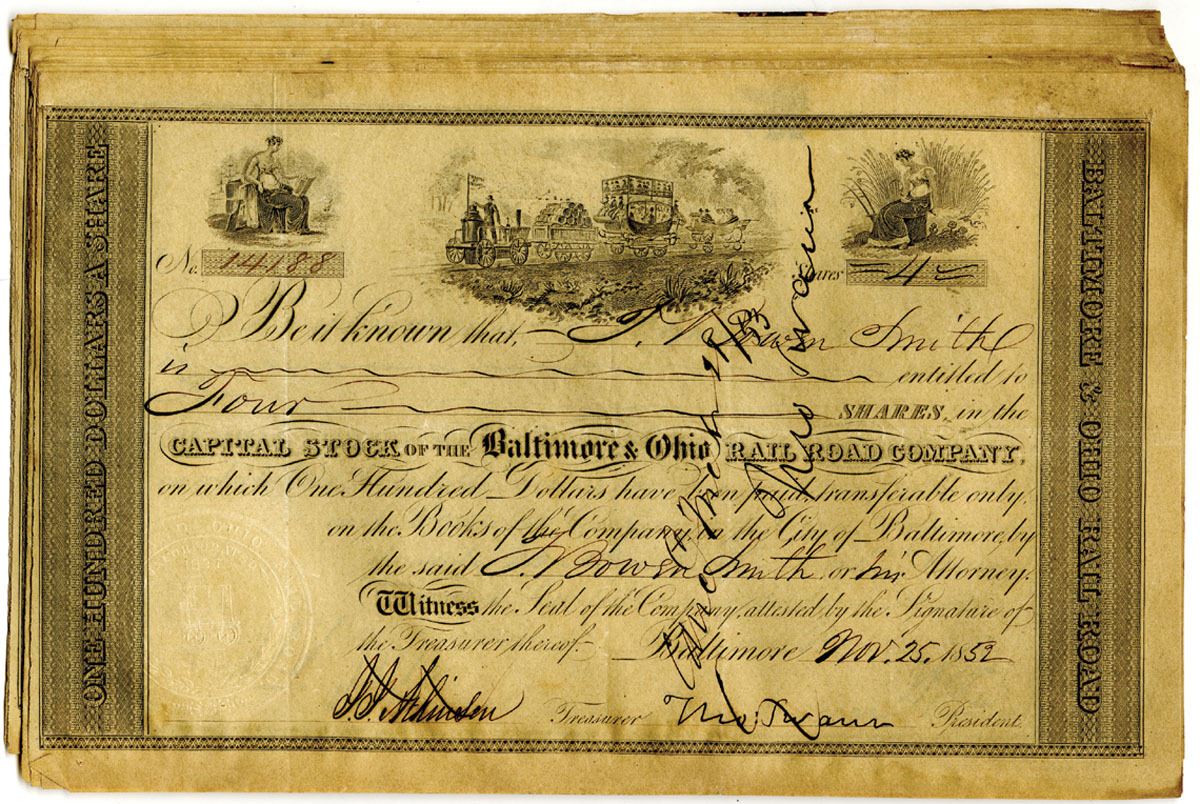 ONE HUNDRED DOLLARS A SHARE
BALTIMORE & OHIO RAIL ROAD
No. 14188
4
Be it known that, J. Bowen Smith
is entitled to
Four SHARES, in the
CAPITAL STOCK OF THE Baltimore & Ohio RAIL ROAD COMPANY,
on which One Hundred Dollars have been paid transferable only,
on the Books of the Company, in the City of Baltimore, by
the said J. Bowen Smith or his Attorney.
Witness the Seal of the Company, attested by the Signature of
the Treasurer thereof. Baltimore Nov. 25. 1852
J. J. Atkinson Treasurer Tho. Swann President
Tho Swann